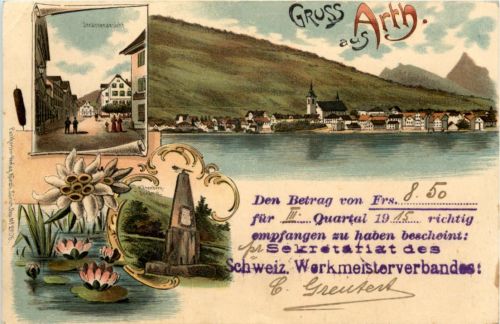 Strassenansicht
Gruss
aus Arth.
Den Betrag von Frs. 8.50
für III. Quartal 1915 richtig
empfangen zu haben bescheint:
pr Sekretariat des
Schweiz. Werkmeisterverbandes:
C. Greutert